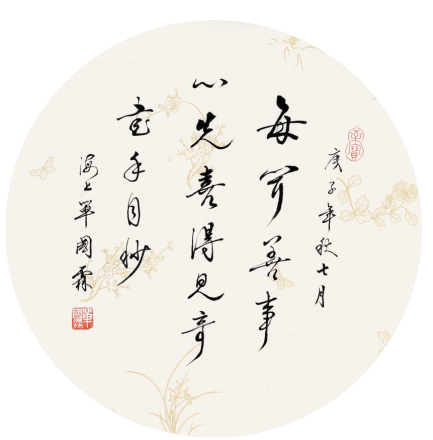 庚子年秋七月
每聞善事
心先喜得見奇
書手自抄
海上單國霖